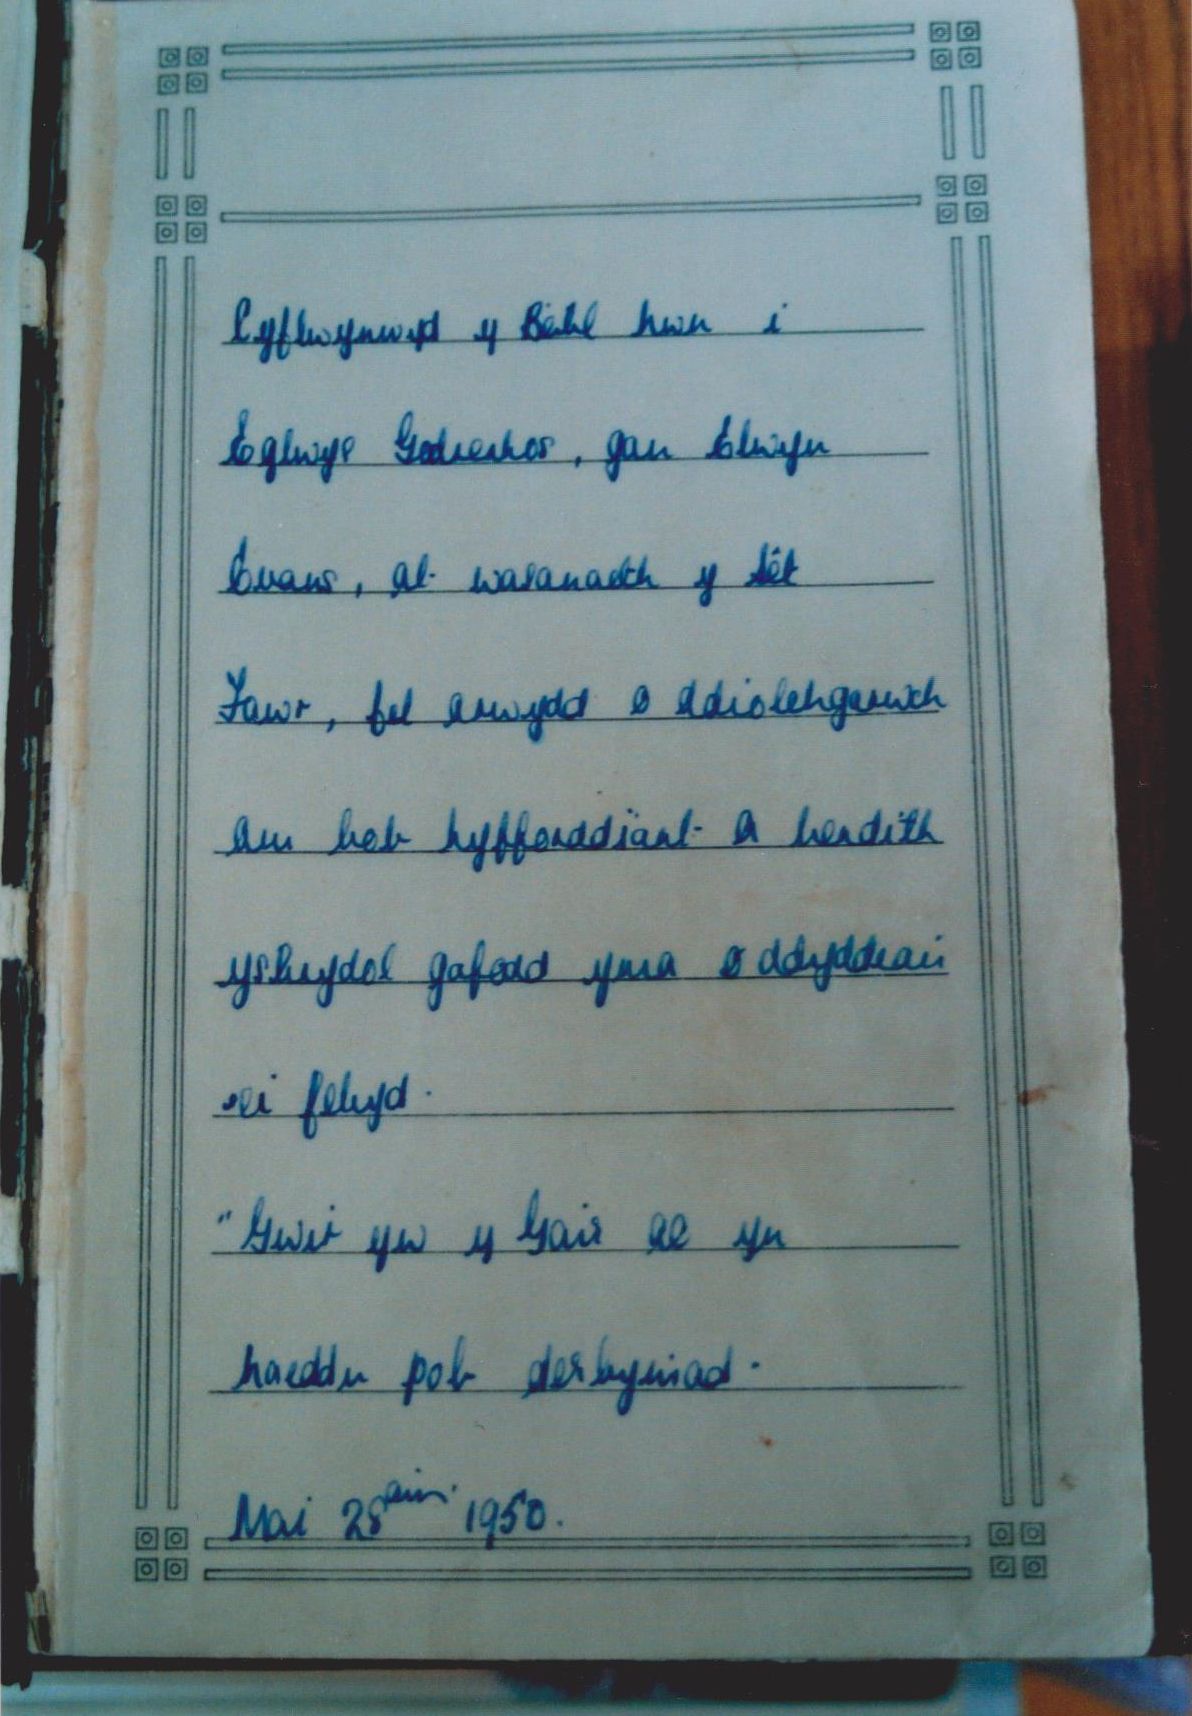 Cyflwynwyd y Beibl hwn i
Eglwys Godrerhos, gan Elwyn
Evans, at wasanaeth y Sêt
Fawr, fel arwydd o ddiolchgarwch
am bob hyfforddiant a bendith
ysbrydol gafodd yma o ddyddiau
ei febyd.
"Gwir yw y Gair ac yn
haeddu pob derbyniad.
Mai 28ain. 1950.